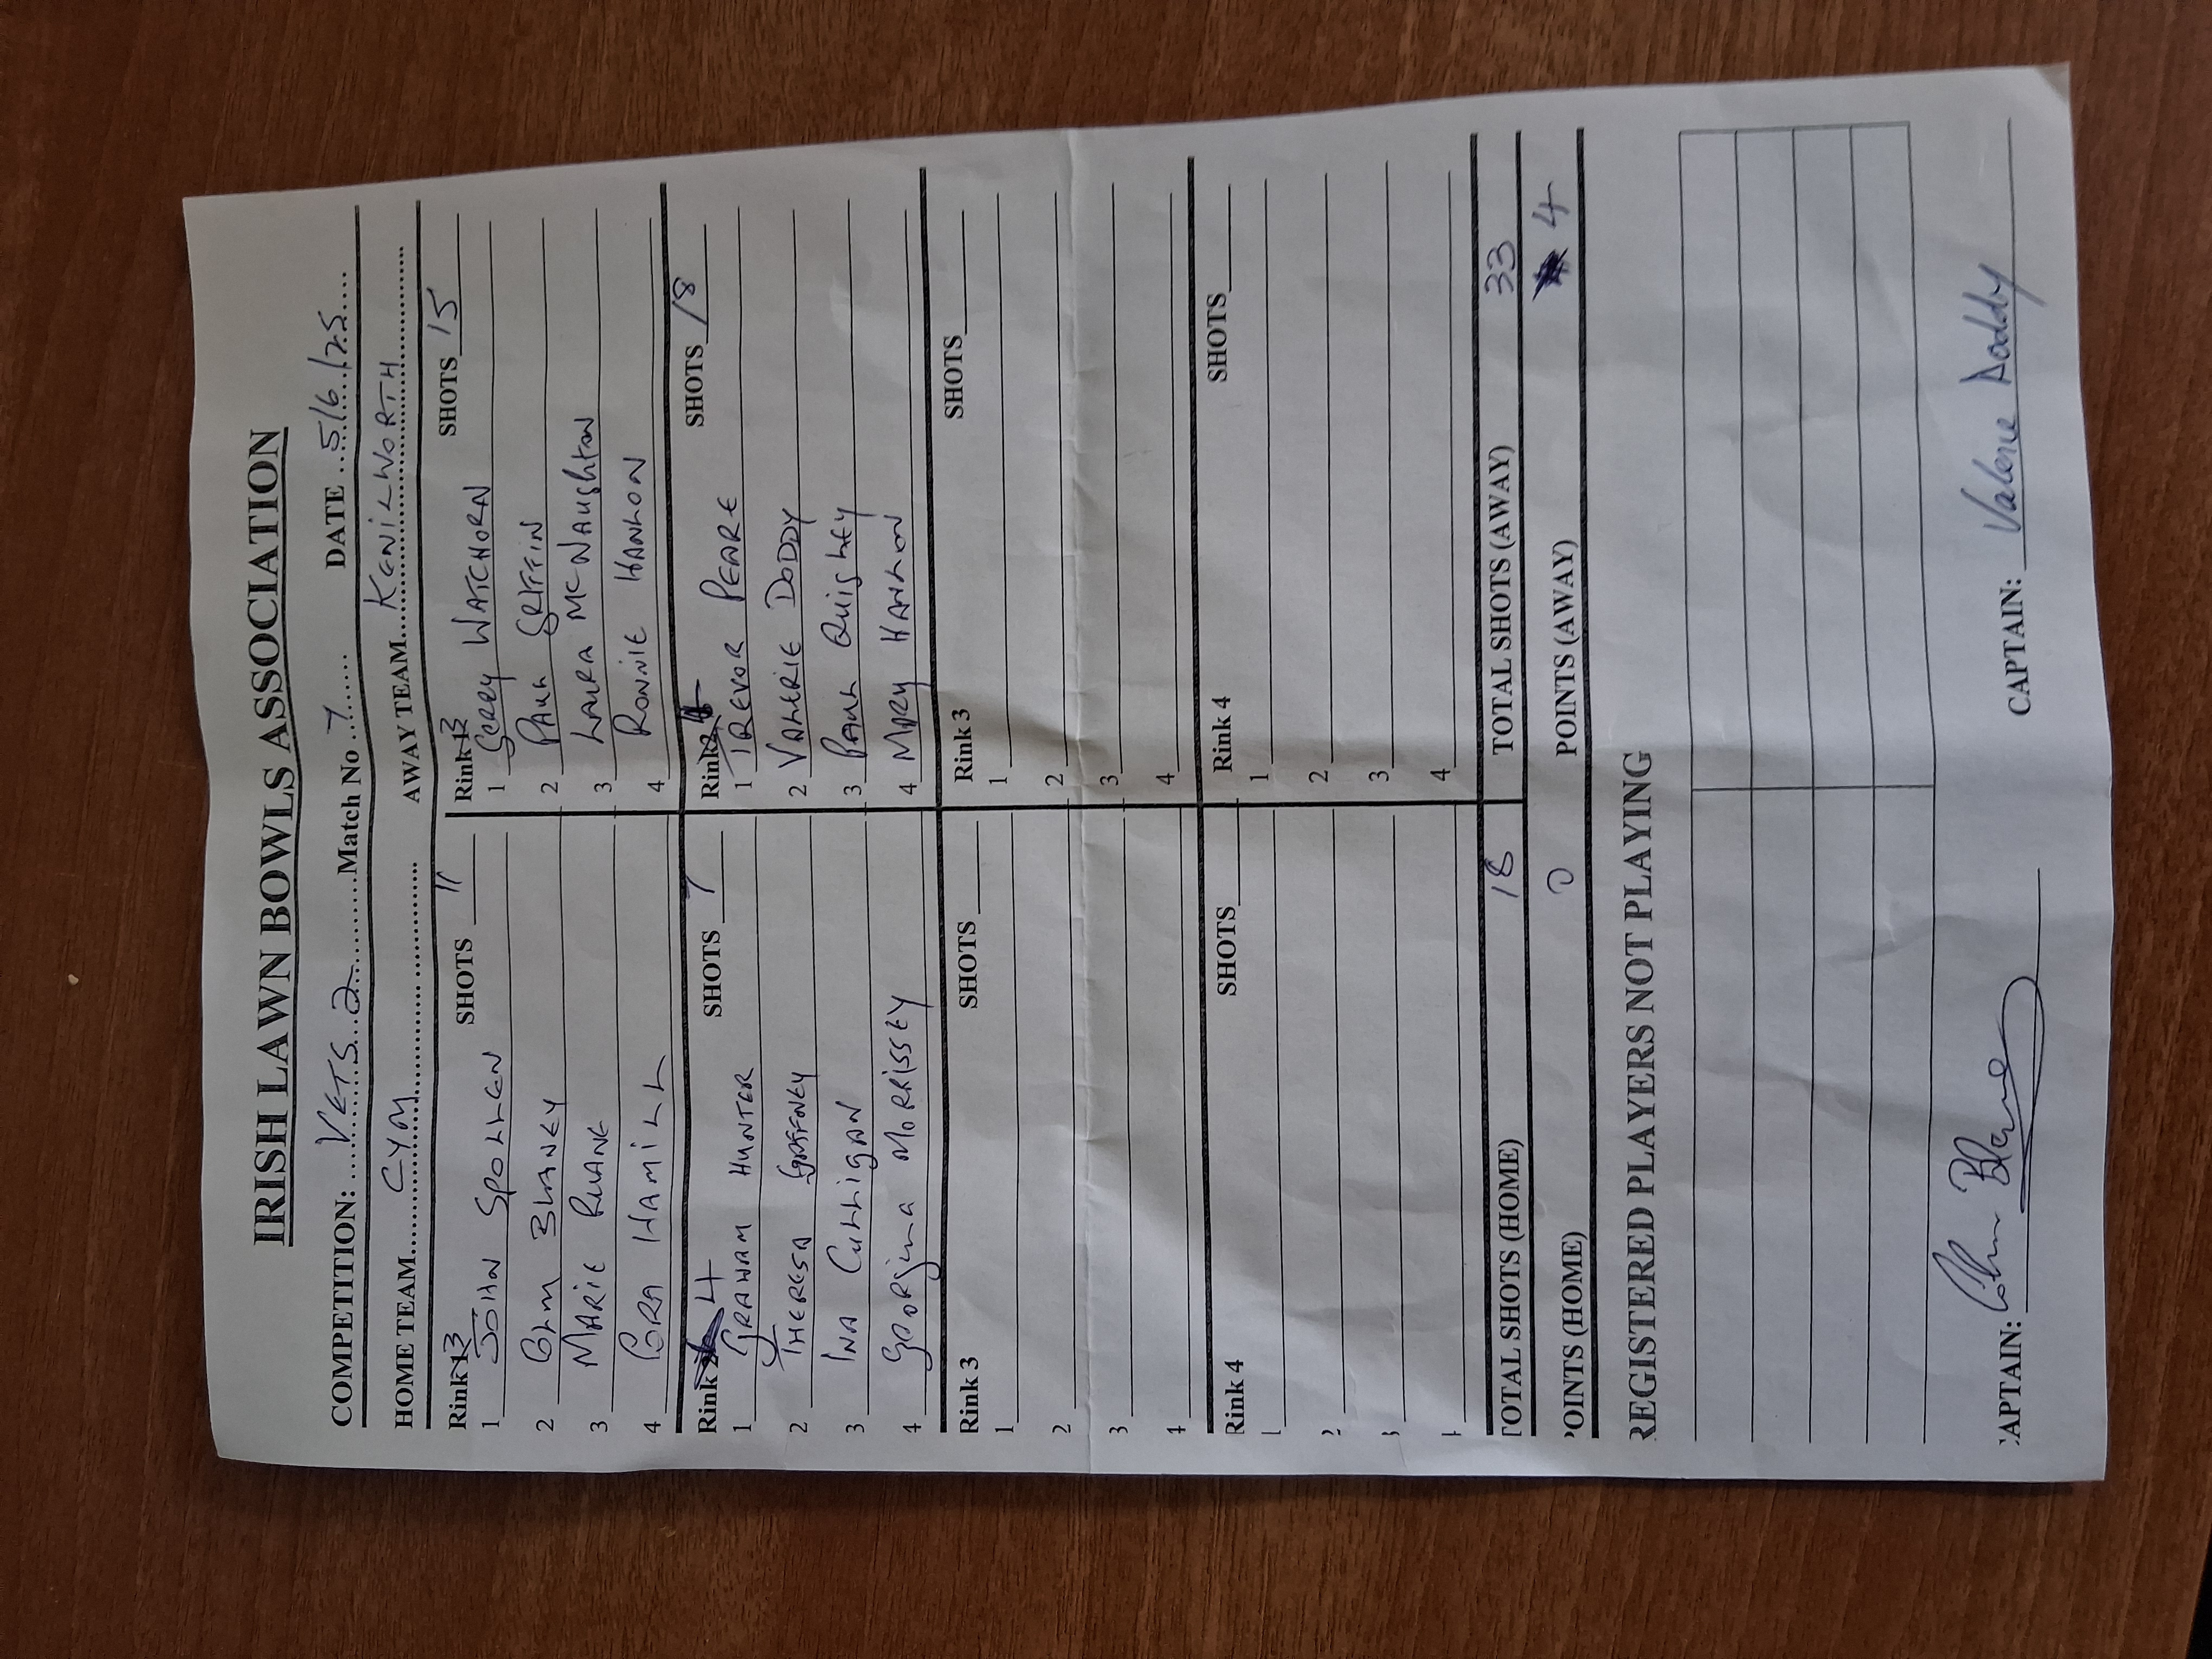 IRISH LAWN BOWLS ASSOCIATION
COMPETITION: ......VETS.2............Match No ..7...... DATE ..5/6/25....
HOME TEAM.......CYM................ AWAY TEAM...KENILWORTH..............
Rink 3 SHOTS 11 Rink 3 SHOTS 15
1 JOHN SPOLLEN 1 GERRY WATCHORN
2 COLM BLANEY 2 PAUL GRIFFIN
3 MARIE RUANE 3 LAURA MCNAUGHTON
4 HAMILL 4 RONNIE HANLON
Rink 4 SHOTS 7 Rink SHOTS 18
1 GRAHAM HUNTER 1 TREVOR PEARE
2 THERESA GAFFNEY 2 VALERIE DODDY
3 INA CULLIGAN 3 PAUL QUIGLEY
4 GEORGINA MORRISSEY 4 MARY HANLON
Rink 3 SHOTS Rink 3 SHOTS
1 1
2 2
3 3
4 4
Rink 4 SHOTS Rink 4 SHOTS
1 1
2 2
3 3
4 4
TOTAL SHOTS (HOME) 18 TOTAL SHOTS (AWAY) 33
POINTS (HOME) 0 POINTS (AWAY) 4
REGISTERED PLAYERS NOT PLAYING
CAPTAIN: Colm Blaney CAPTAIN: Valerie Doddy